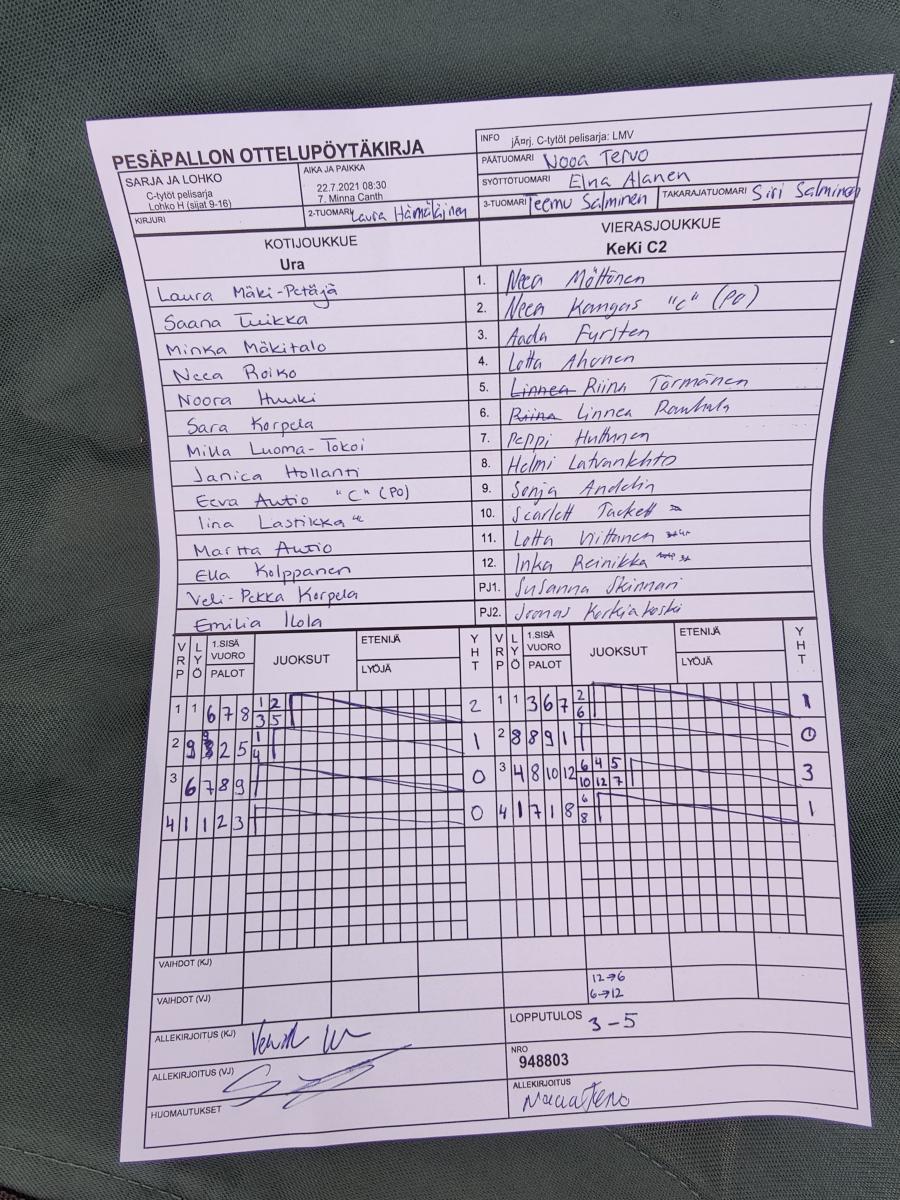 PESÄPALLON OTTELUPÖYTÄKIRJA
INFO jÃ¤rj. C-tytöt pelisarja: LMV
PÄÄTUOMARI Nooa Tervo
SYÖTTÖTUOMARI Elna Alanen
SARJA JA LOHKO
C-tytöt pelisarja
Lohko H (sijat 9-16)
AIKA JA PAIKKA
22.7.2021 08:30
7. Minna Canth
KIRJURI
2-TUOMARI Laura Hämäläinen
3-TUOMARI Teemu Salminen
TAKARAJATUOMARI Siri Salminen
KOTIJOUKKUE
Ura
VIERASJOUKKUE
KeKi C2
Laura Mäki-Petäjä 1. Neea Möttönen
Saana Tuikka 2. Neea Kangas "C" (PO)
Minka Mäkitalo 3. Aada Fyrsten
Neea Roiko 4. Lotta Ahonen
Noora Huuki 5. Linnea Riina Törmänen
Sara Korpela 6. Riina Linnea Rauhala
Milla Luoma-Tokoi 7. Peppi Huttunen
Janica Hollanti 8. Helmi
Eeva Autio "C" (PO) 9. Sonja Andelin
Iina Lastikka 10. Scarlett Tackett
Martta Autio 11. Lotta
Ella Kolppanen 12. Inka Reinikka
Veli-Pekka Korpela PJ1. Susanna Skinnari
Emilia Ilola PJ2. Joonas Korkiakoski
VRP LYÖ 1.SISÄ VUORO PALOT JUOKSUT ETENIJÄ LYÖJÄ YHT VRP LYÖ 1.SISÄ VUORO PALOT JUOKSUT ETENIJÄ LYÖJÄ YHT
1 1 6 7 8 1 2 2 1 1 3 6 7 2 1
3 5 6
2 9 2 5 1 1 2 8 8 9 1 0
4
3 6 7 8 9 0 3 4 8 10 12 6 4 5 3
10 12 7
4 1 1 2 3 0 4 1 7 1 8 6 1
8
VAIHDOT (KJ)
VAIHDOT (VJ) 12→6
6→12
ALLEKIRJOITUS (KJ)
LOPPUTULOS 3-5
ALLEKIRJOITUS (VJ)
NRO
948803
HUOMAUTUKSET
ALLEKIRJOITUS